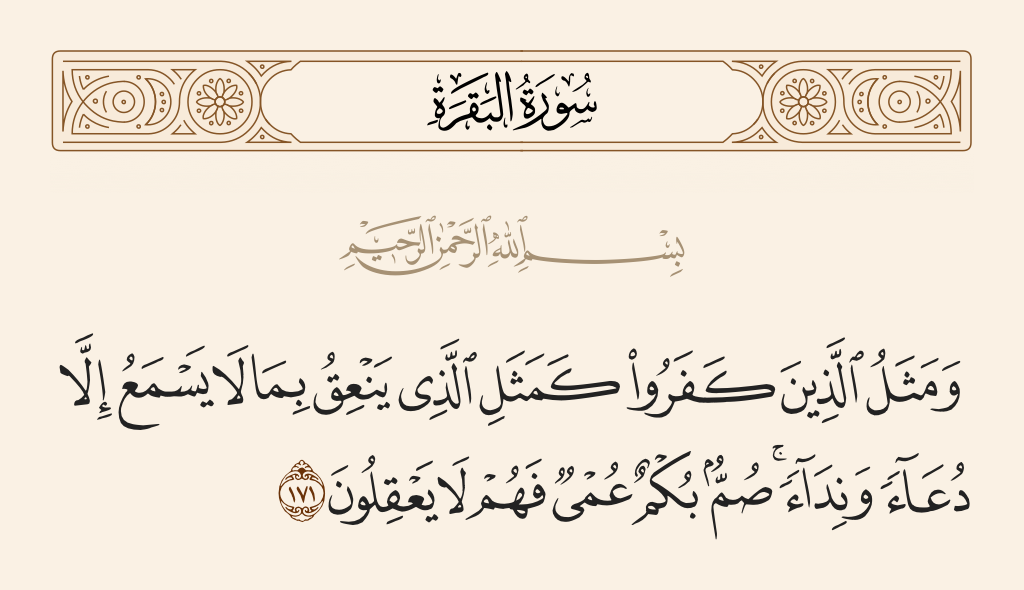 سُورَةُ البَقَرَةِ
بِسْمِ ٱللَّهِ ٱلرَّحْمَٰنِ ٱلرَّحِيمِ
وَمَثَلُ ٱلَّذِينَ كَفَرُوا۟ كَمَثَلِ ٱلَّذِى يَنْعِقُ بِمَا لَا يَسْمَعُ إِلَّا
دُعَآءً وَنِدَآءً ۚ صُمٌّۢ بُكْمٌ عُمْىٌ فَهُمْ لَا يَعْقِلُونَ ١٧١